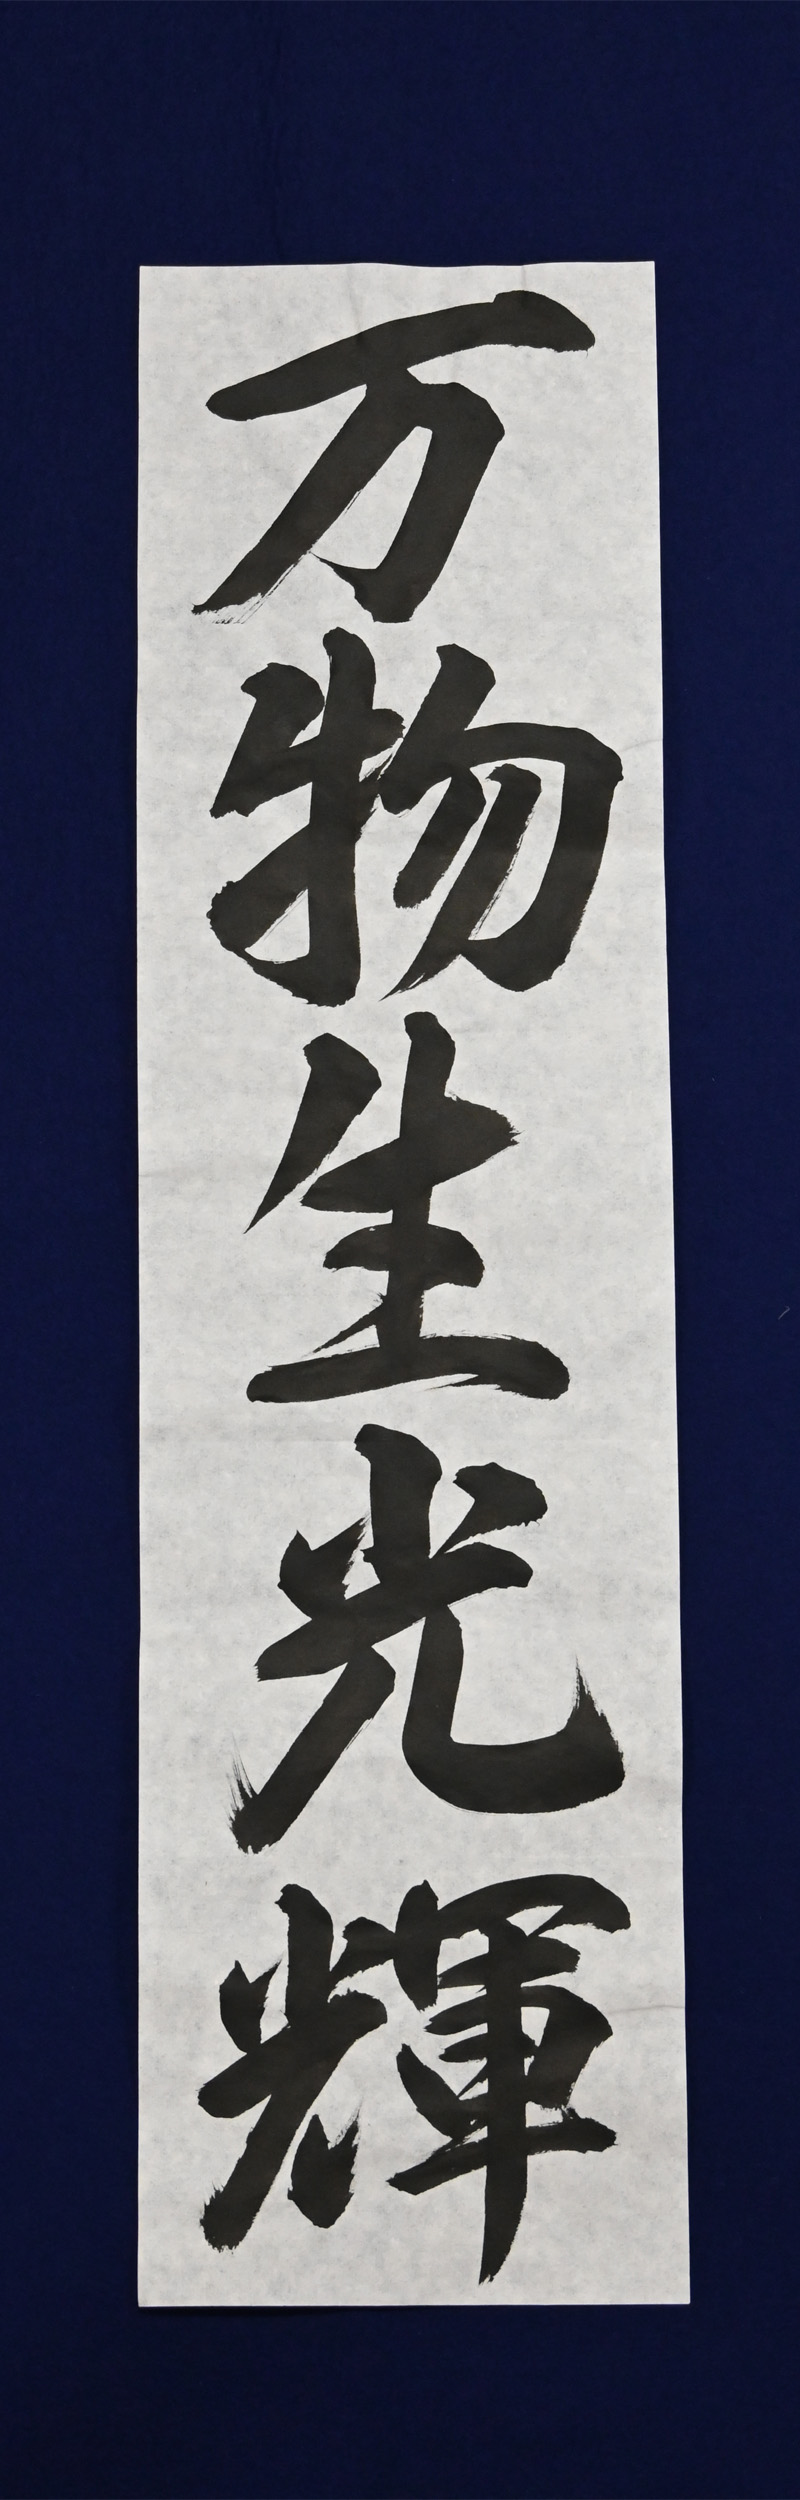 万物生光輝